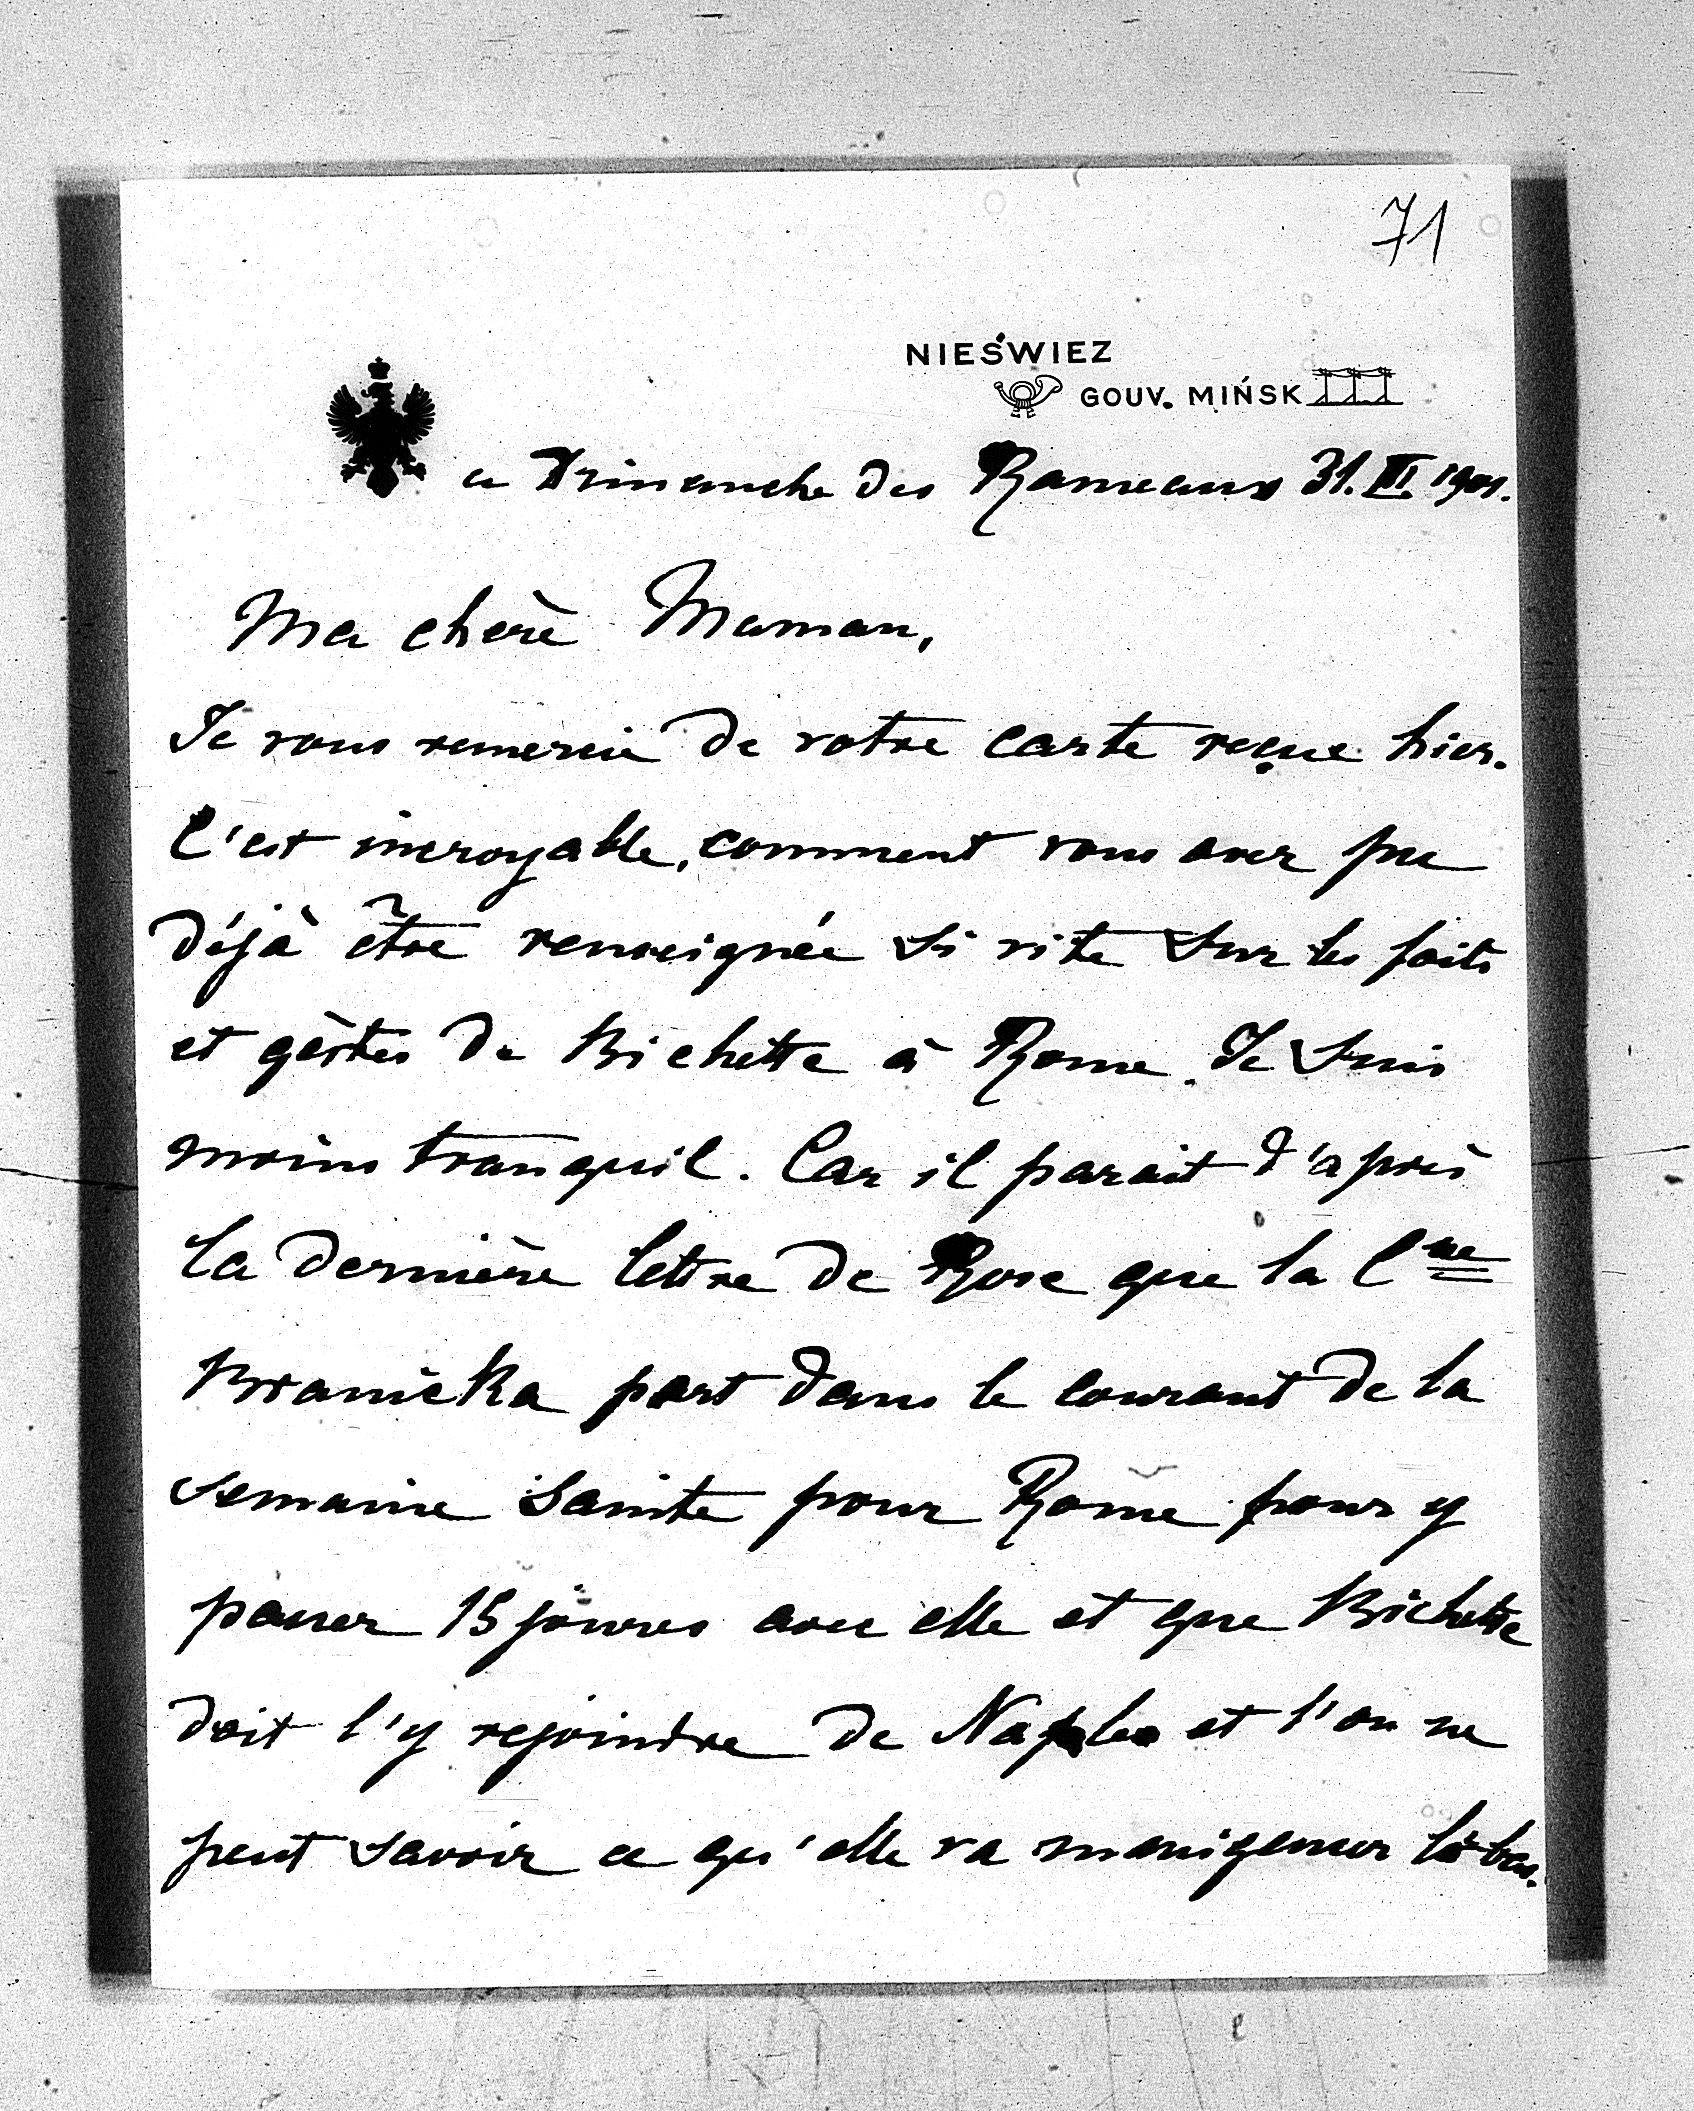 71
NIEŚWIEZ
GOUV. MIŃSK
ce Dimanche des Rameaux 31.III.1901.
Ma chère Maman,
Je vous remercie de votre carte reçue hier.
C'est incroyable, comment vous avez pu
déjà être renseignée si vite sur les faits
et gèstes de Bichette à Rome. Je suis
moins tranquil. Car il parait d'après
la dernière lettre de Rose que la C
Branicka part dans le courant de la
semaine Sainte pour Rome pour y
passer 15 jours avec elle et que Bichette
doit l'y rejoindre de Naples et l'on ne
peut savoir ce qu'elle va manigencer là bas.